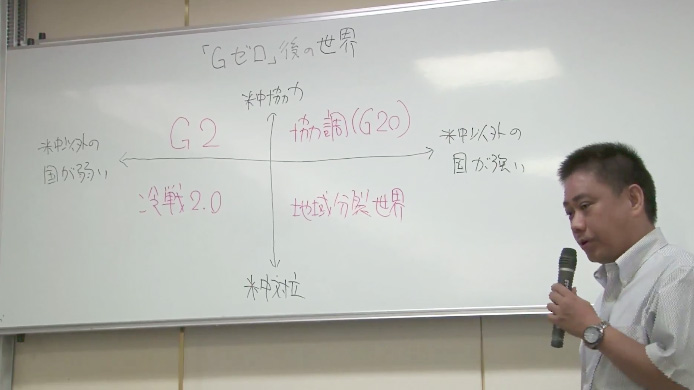 「Gゼロ」後の世界
米中協力
G2
協調(G20)
米中以外の
国が弱い
米中以外の
国が強い
冷戦2.0
地域分裂世界
米中対立